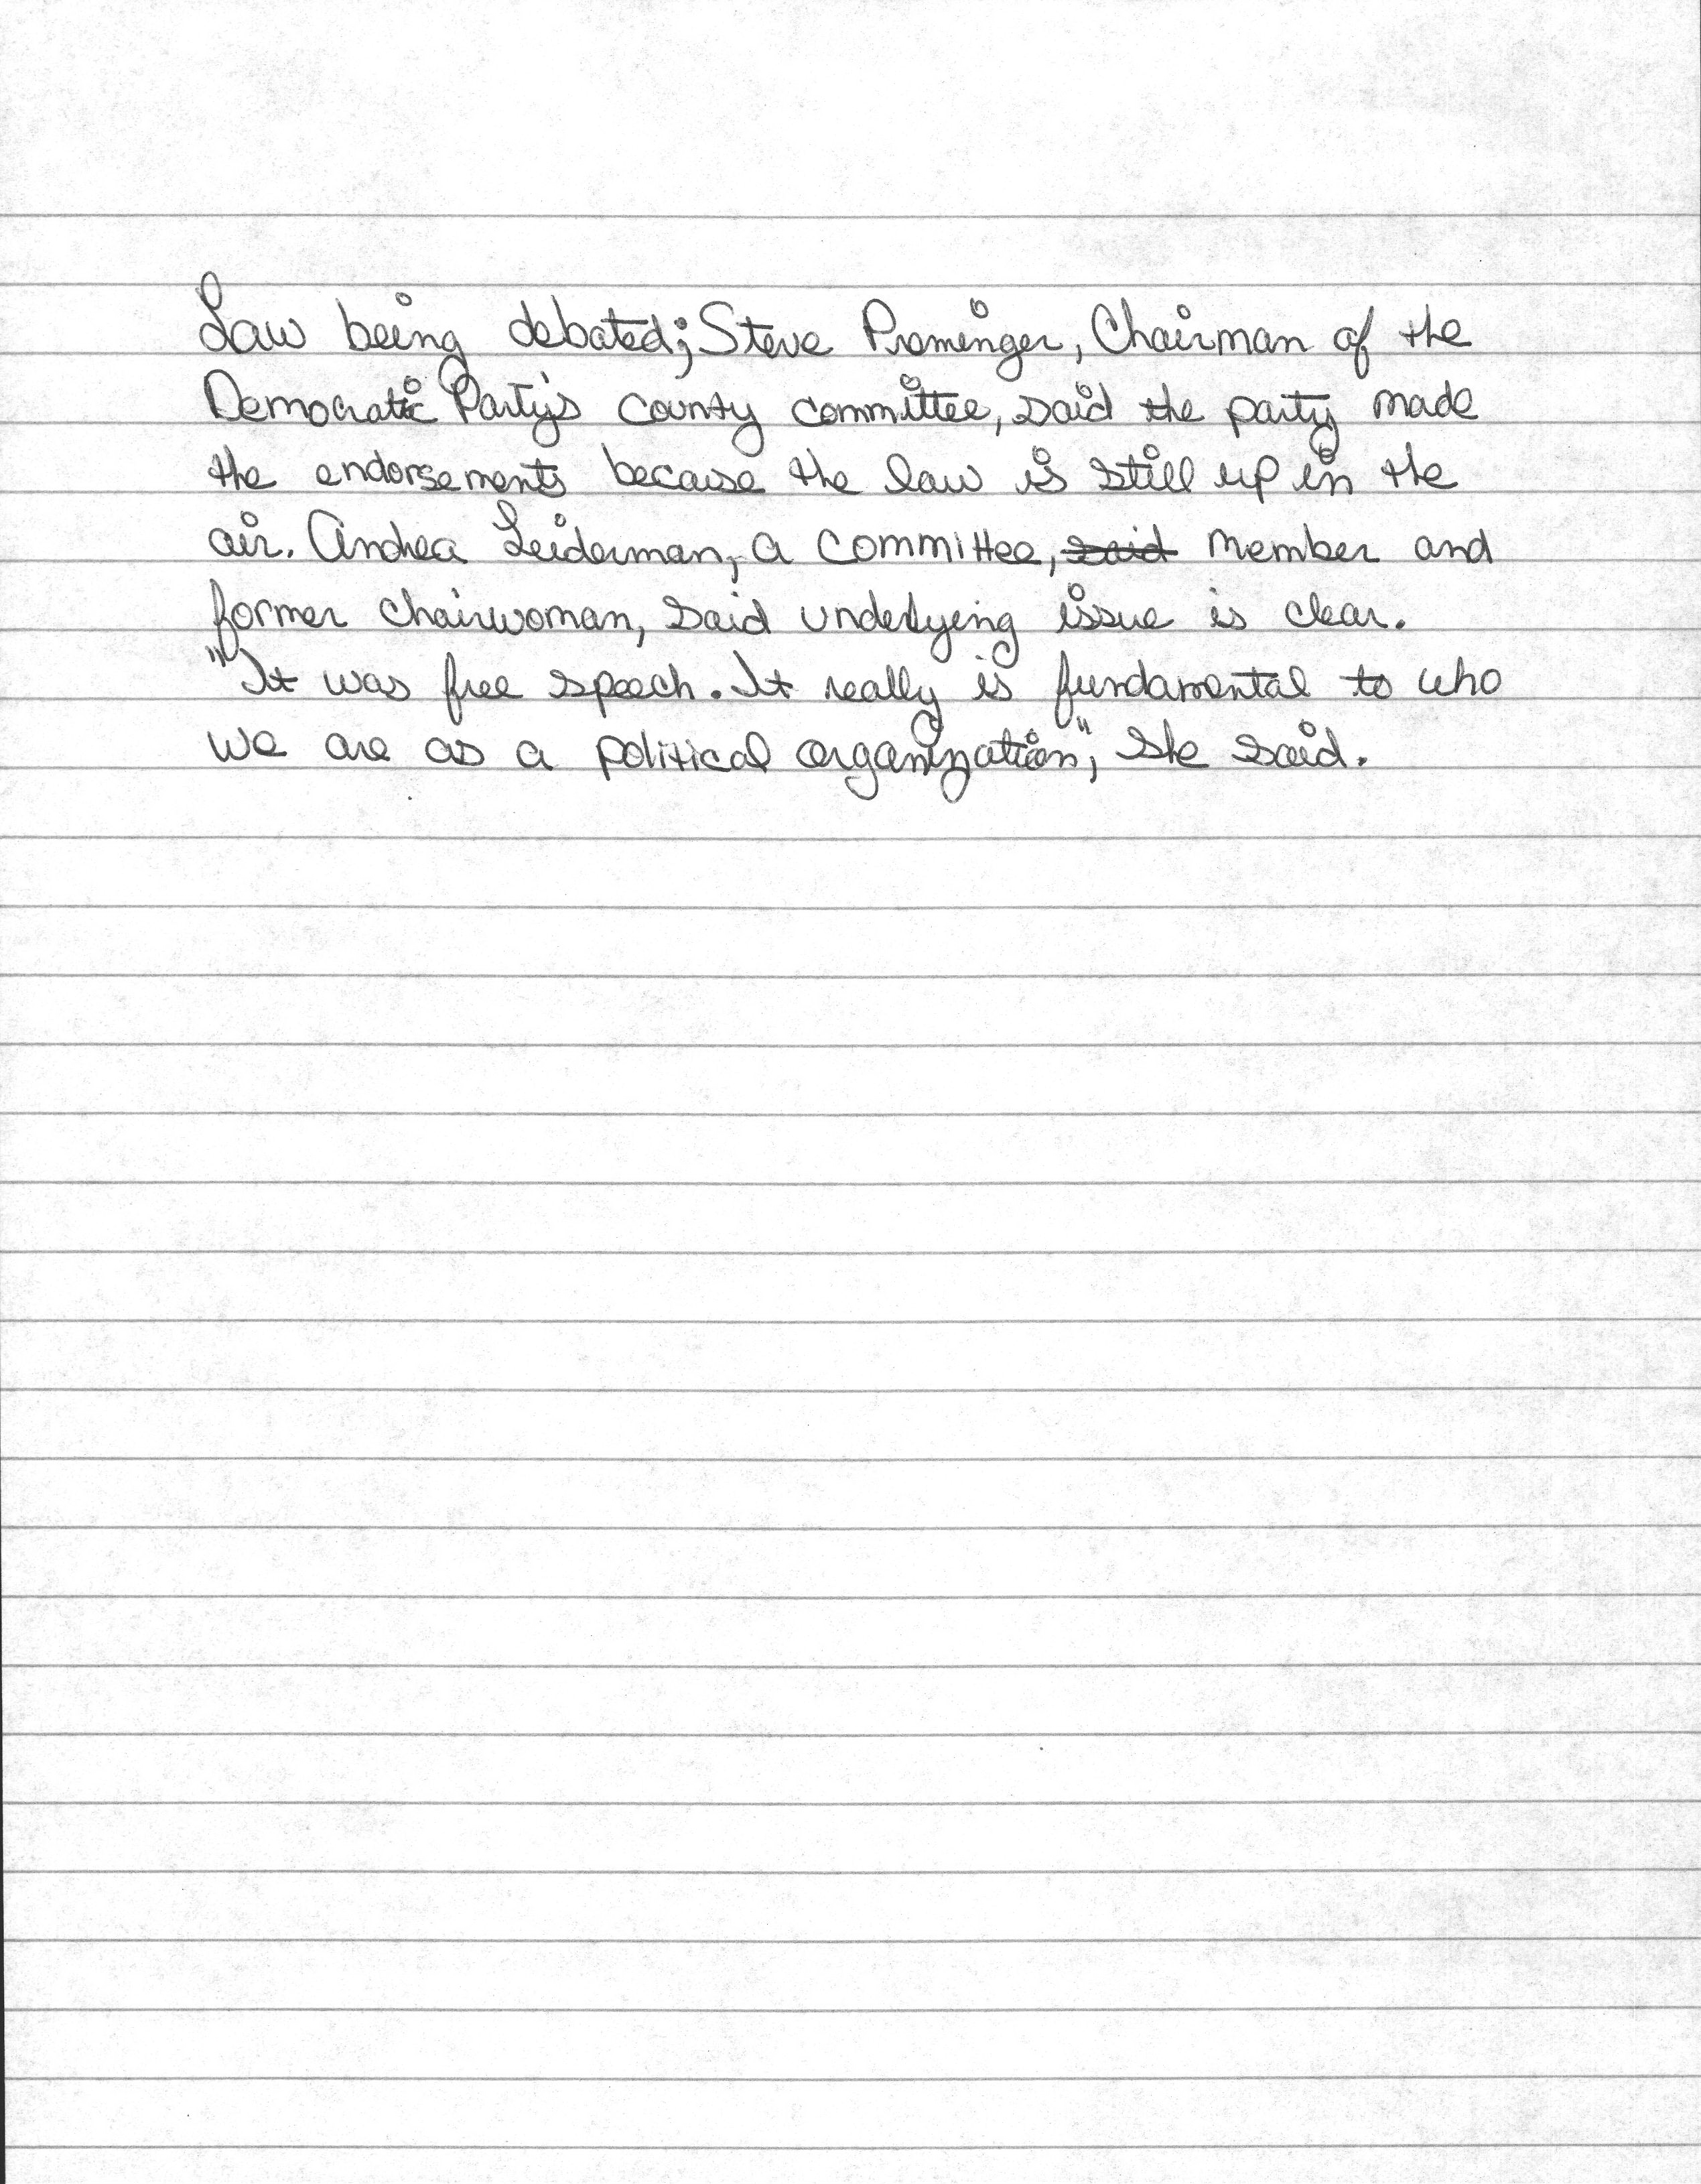 Law being debated; Steve Preminger, Chairman of the
Democratic Party's county committee, said the party made
the endorsements because the law is still up in the
air. Andrea Leiderman, a committee, ~~said~~ member and
former chairwoman, said underlying issue is clear.
"It was free speech. It really is fundamental to who
we are as a political organization", she said.